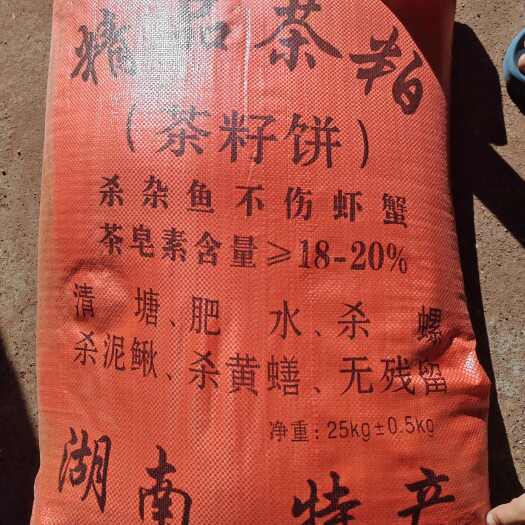 精品茶粕
（茶籽饼）
杀杂鱼不伤虾蟹
茶皂素含量≥18-20%
清塘、肥水、杀螺
杀泥鳅、杀黄鳝、无残留
净重：25kg±0.5kg
湖南特产